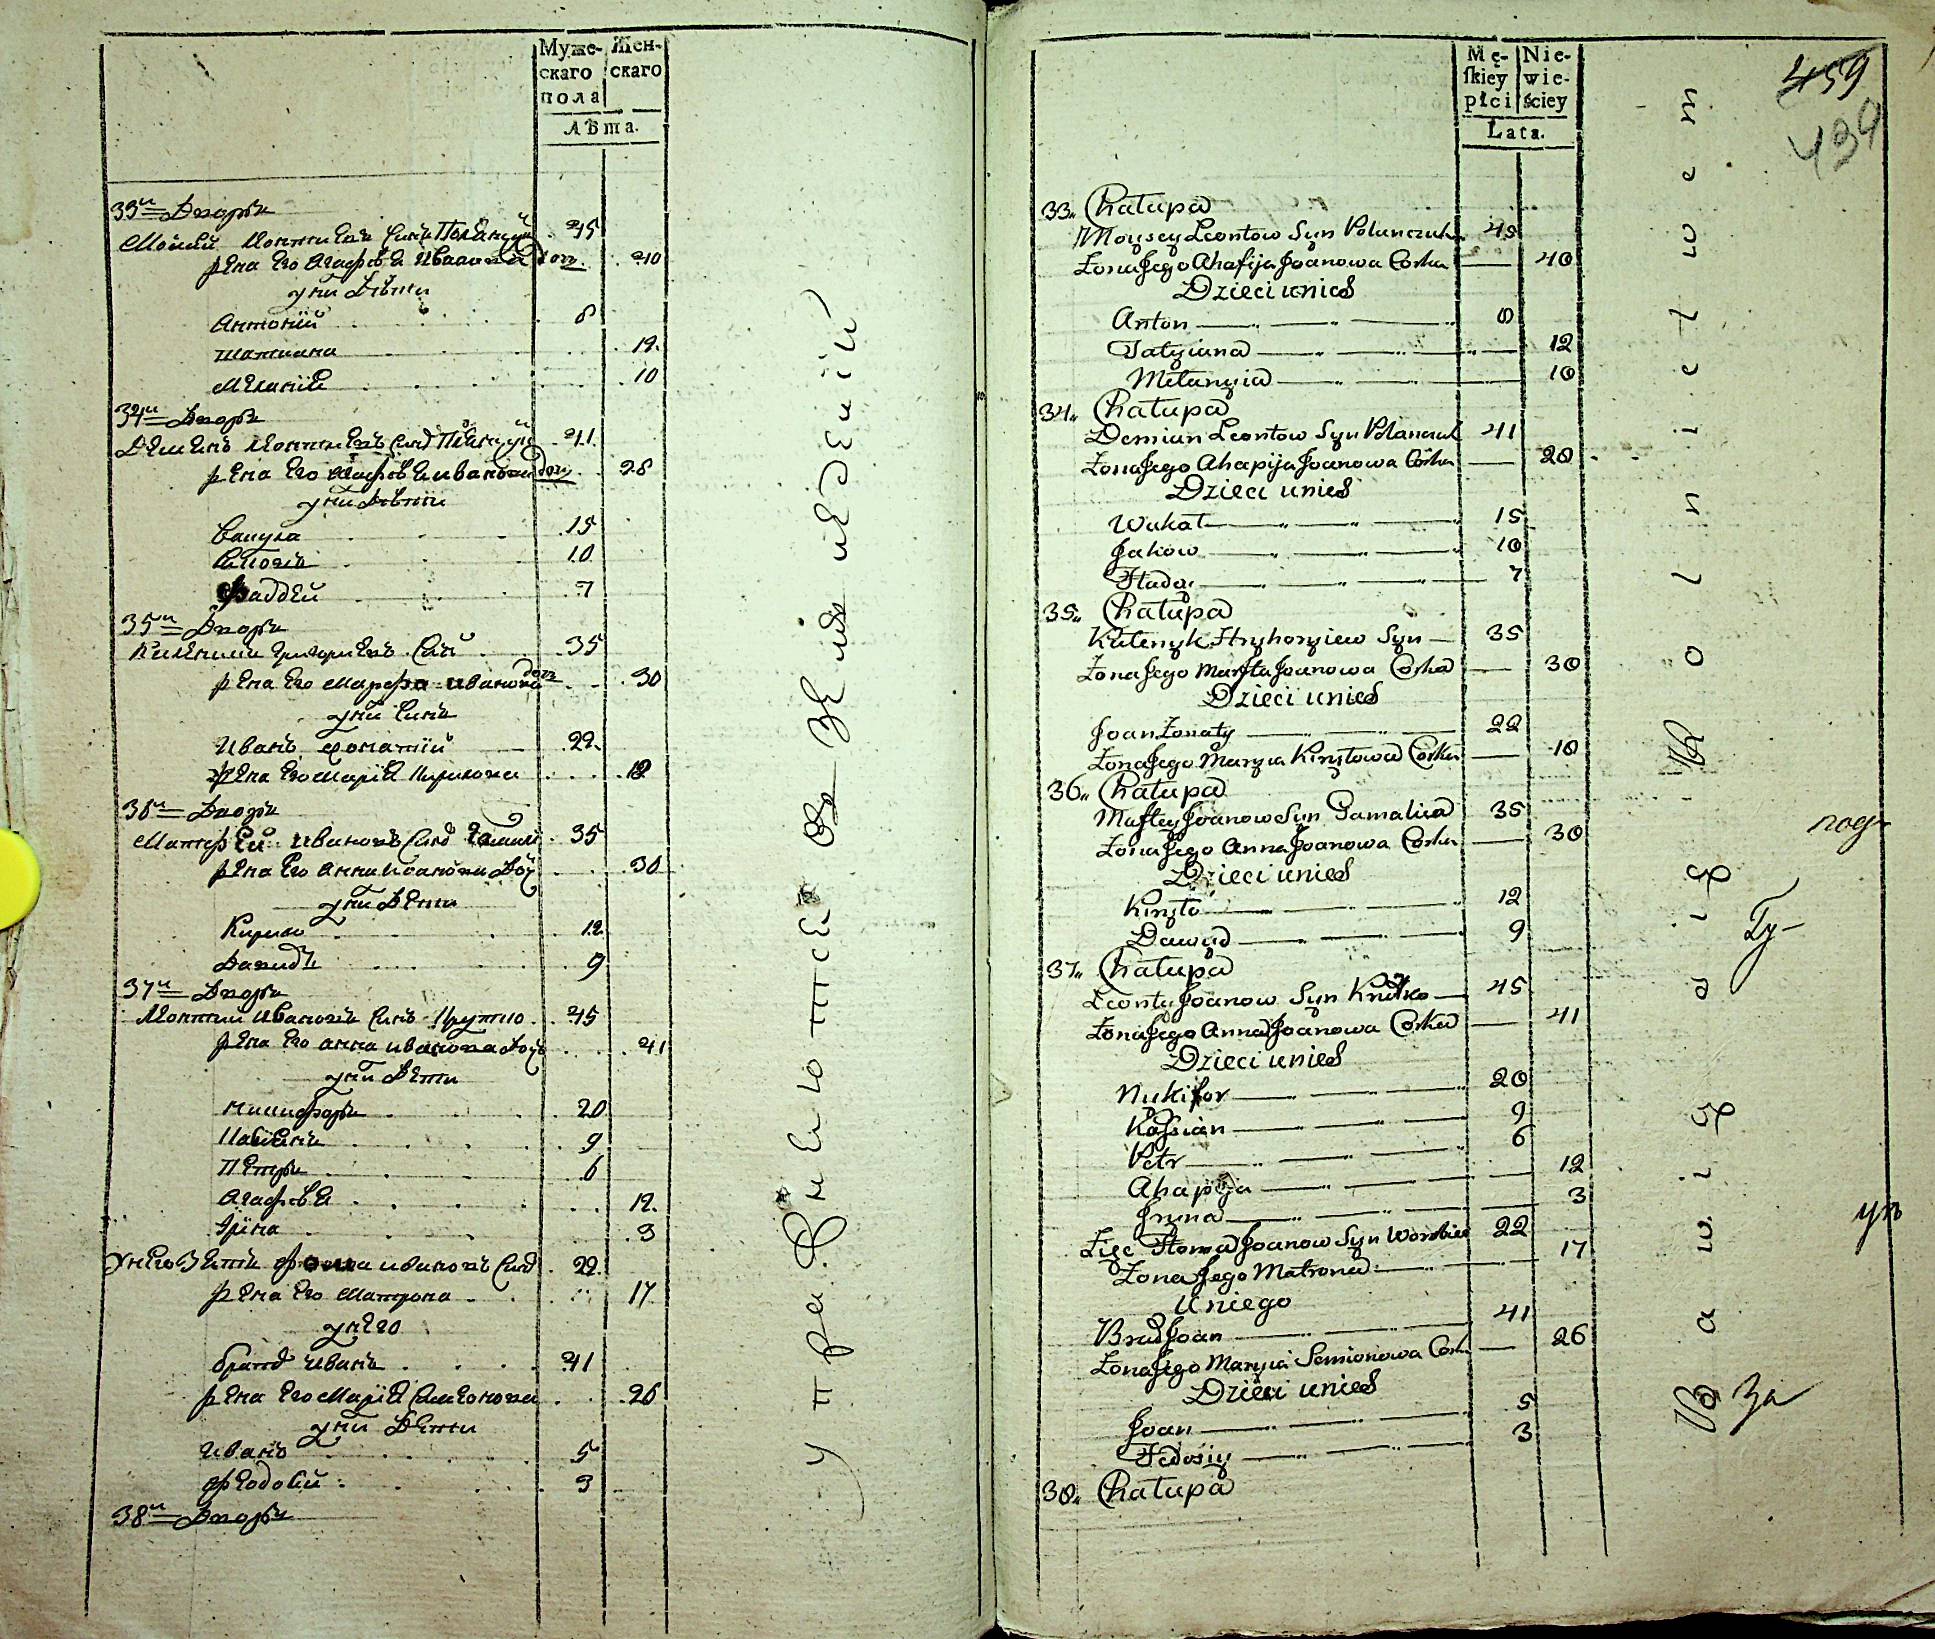 Муже-
скаго
пола
Жен-
скаго
Лѣта.
33й Дворъ
Моисей Леонтиевъ Синъ 45
жена Его Агафiя Иванова доч 40
у них Дѣти
Антонiй 8
татиана 12
Меланiя 10
34й Дворъ
Демянъ Леонтиевъ синъ 41
жена Его Агафiя иванова доч 28
у них Дѣти
Вакула 15
10
Фаддей 7
35й Дворъ
Григориевъ Син 35
жена Его Марфа иванова доч 30
у них Синъ
Иванъ жонатiй 22
жена Его Марiя Кирилова 18
36й Дворъ
Матфей Ивановъ Синъ 35
жена Его Анна Иванова Доч 30
у них Дети
Кирило 12
Давидъ 9
37й Дворъ
Леонтий Ивановъ Синъ Крутко 45
жена Его анна иванова Доч 41
у них Дети
никифоръ 20
Касиянъ 9
Петръ 6
Агафiя 12
Iрина 3
у него Зять Фома ивановъ Синъ 22
жена Его Матрона 17
у него
братъ Иванъ 41
жена Его Марiя Симеонова 26
у них Дети
Иванъ 5
Феодосий 3
38й Дворъ
Mę-
skiey
płci
Nie-
wie-
ściey
Lata.
459
439
33. Chałupa
Moysey Leontow Syn Polanczuk 45
Żona Jego Ahafija Joanowa Corka 40
Dzieci u nich
Anton 8
Tatyiana 12
Mełanyia 10
34. Chałupa
Demian Leontow Syn Polanczuk 41
Żona Jego Ahapija Joanowa Corka 28
Dzieci u nich
Wukał 15
Jakow 10
Ftadey 7
35. Chałupa
Kalenyk Hryhoryiew Syn 35
Żona Jego Marfta Joanowa Corka 30
Dzieci u nich
Joan Żonaty 22
Żona Jego Maryia Kiryłowa Corka 18
36. Chałupa
Maftey Joanow Syn Gamalica 35
Żona Jego Anna Joanowa Corka 30
Dzieci u nich
Kiryło 12
Dawyd 9
37. Chałupa
Leonty Joanow Syn Krutko 45
Żona Jego Anna Joanowa Corka 41
Dzieci u nich
Nikifor 20
Kassian 9
Petr 6
Ahapija 12
Iryna 3
Zięć Ftoma Joanow Syn 22
Żona Jego Matrona 17
U niego
Brad Joan 41
Żona Jego Maryia Semionowa Cork 26
Dzieci u nich
Joan 5
Fedosiy 3
38. Chałupa
Ту-
За